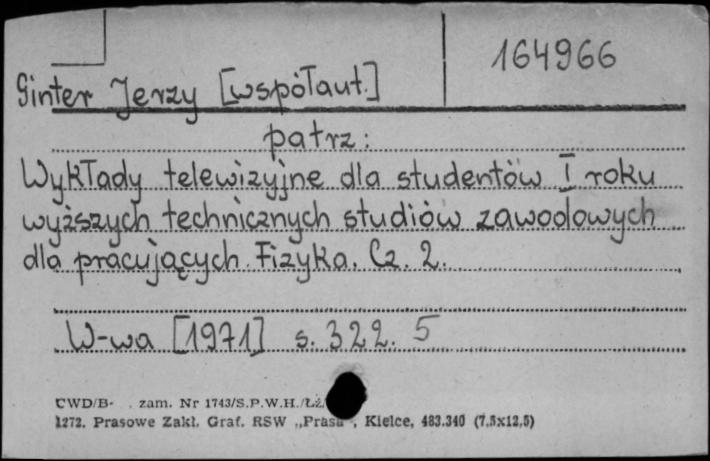 164966
Ginter Jerzy [współaut.]
patrz:
Wykłady telewizyjne dla studentów I roku
wyższych technicznych studiów zawodowych
dla pracujących. Fizyka. Cz. 2.
W-wa [1971] s. 322. 5
CWD/B- . zam. Nr 1743/S.P.W.H./Łż/
1272. Prasowe Zakł. Graf. RSW „Prasa", Kielce, 483.340 (7,5x12,5)